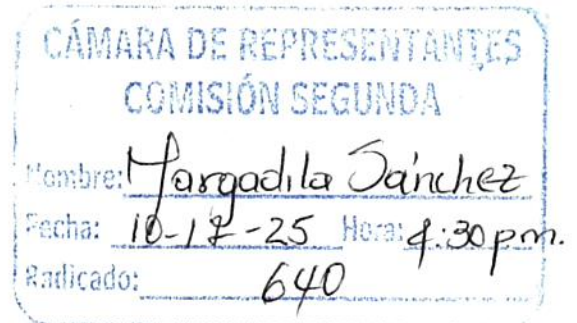 CÁMARA DE REPRESENTANTES
COMISIÓN SEGUNDA
Nombre: Margadila Sánchez
Fecha: 10-17-25 Hora: 4:30 pm.
Radicado: 640